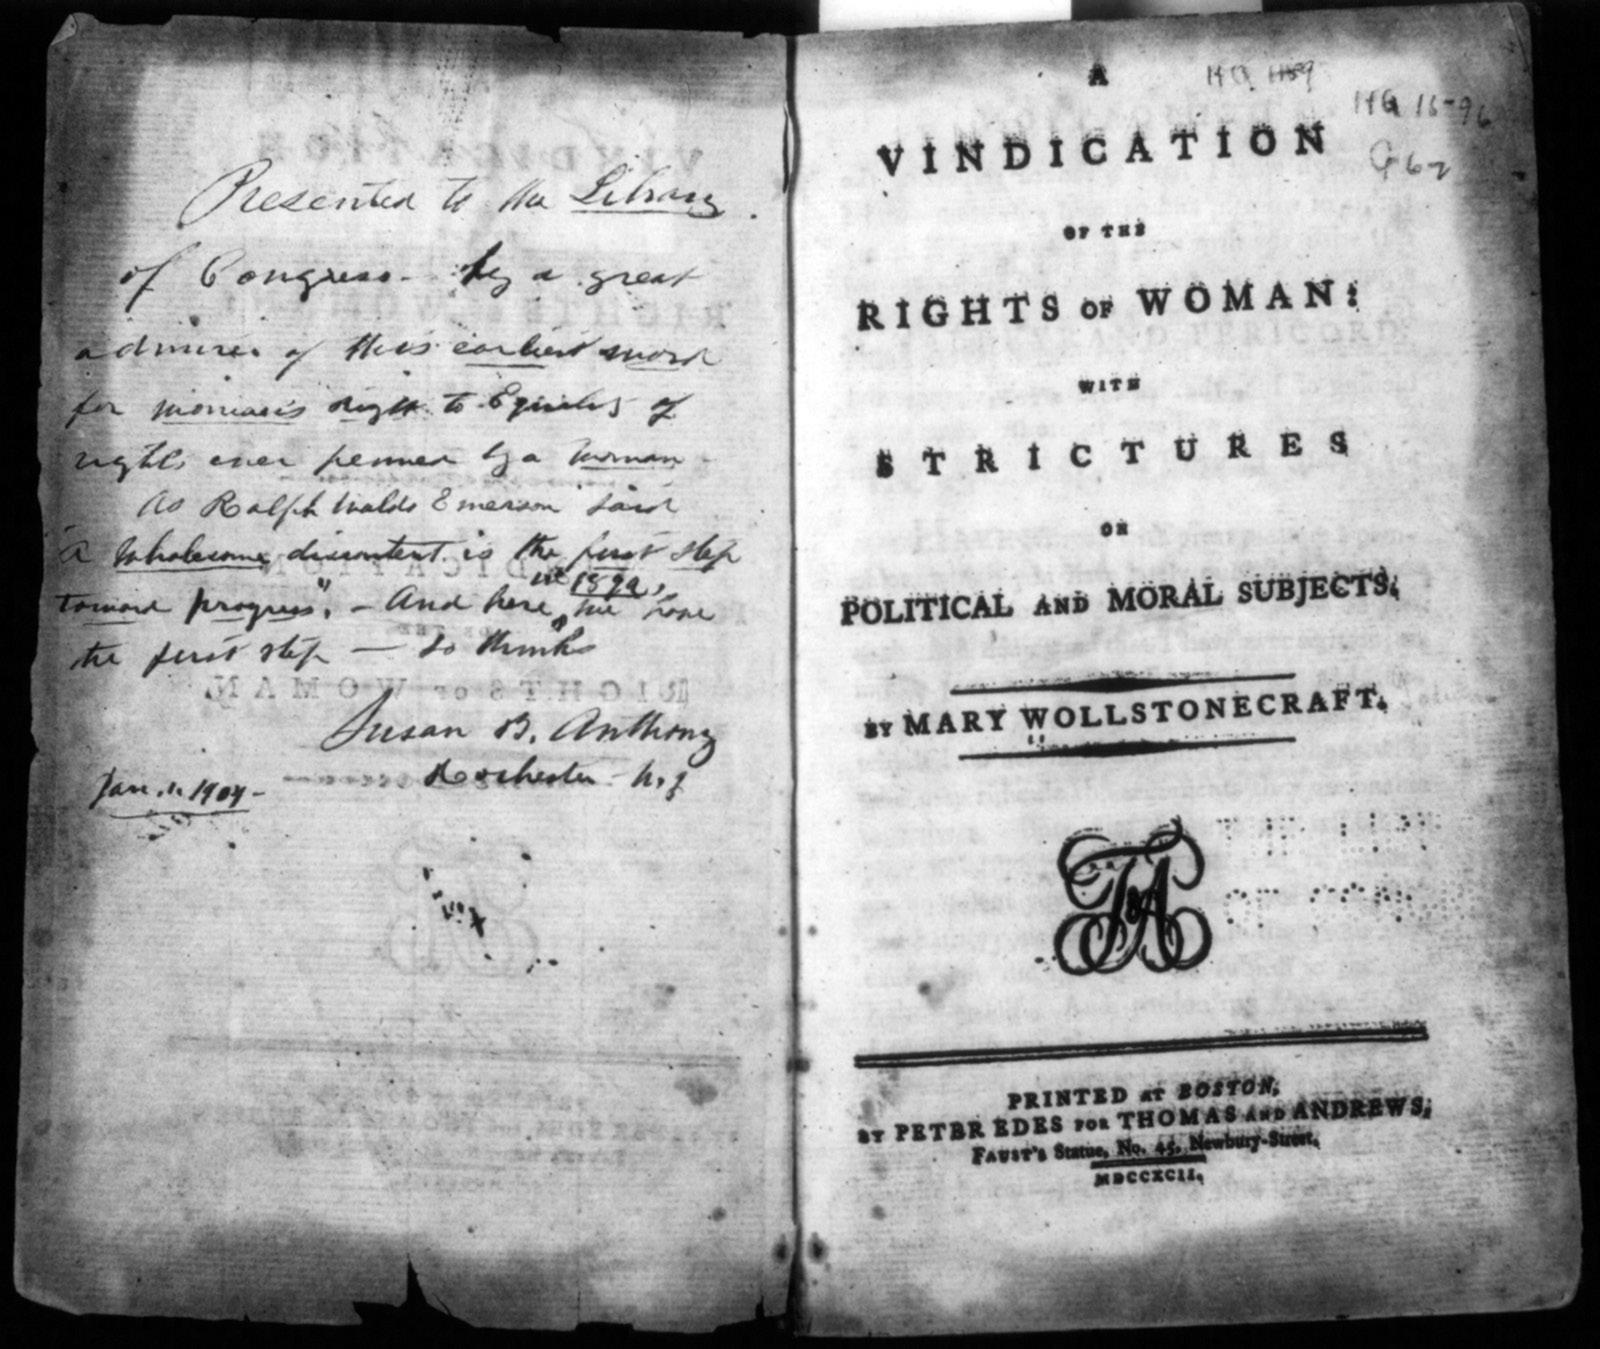 Presented to the Library
of Congress - by a great
admirer of this earliest work
for woman's right to Equality of
rights ever penned by a woman -
As Ralph Waldo Emerson said
"A wholesome discontent is the first step
toward progress". - And here, in 1892, we have
the first step - So thinks
Susan B. Anthony
Rochester - N.Y
Jan. 1. 1904 -
A
VINDICATION
OF THE
RIGHTS OF WOMAN:
WITH
STRICTURES
ON
POLITICAL AND MORAL SUBJECTS.
BY MARY WOLLSTONECRAFT.
T&A
PRINTED AT BOSTON,
BY PETER EDES FOR THOMAS AND ANDREWS,
FAUST'S Statue, No. 45, Newbury-Street,
MDCCXCII.
HQ 1596